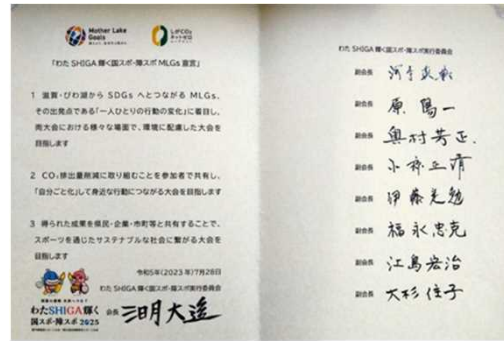 Mother Lake
Goals
しがCO₂
ネットゼロ
「わた SHIGA 輝く国スポ・障スポ MLGs 宣言」
1 滋賀・びわ湖から SDGs へとつながる MLGs、
その出発点である「一人ひとりの行動の変化」に着目し、
両大会における様々な場面で、環境に配慮した大会を
目指します
2 CO₂排出量削減に取り組むことを参加者で共有し、
「自分ごと化」して身近な行動につながる大会を目指します
3 得られた成果を県民・企業・市町等と共有することで、
スポーツを通じたサステナブルな社会に繋がる大会を
目指します
令和5年(2023年)7月28日
わた SHIGA 輝く国スポ・障スポ実行委員会
会長 三日月大造
わたSHIGA輝く
国スポ・障スポ 2025
わた SHIGA 輝く国スポ・障スポ実行委員会
副会長
副会長 原 陽一
副会長 奥村芳正
副会長
副会長 伊藤定勉
副会長 福永忠克
副会長 江島宏治
副会長 大杉住子